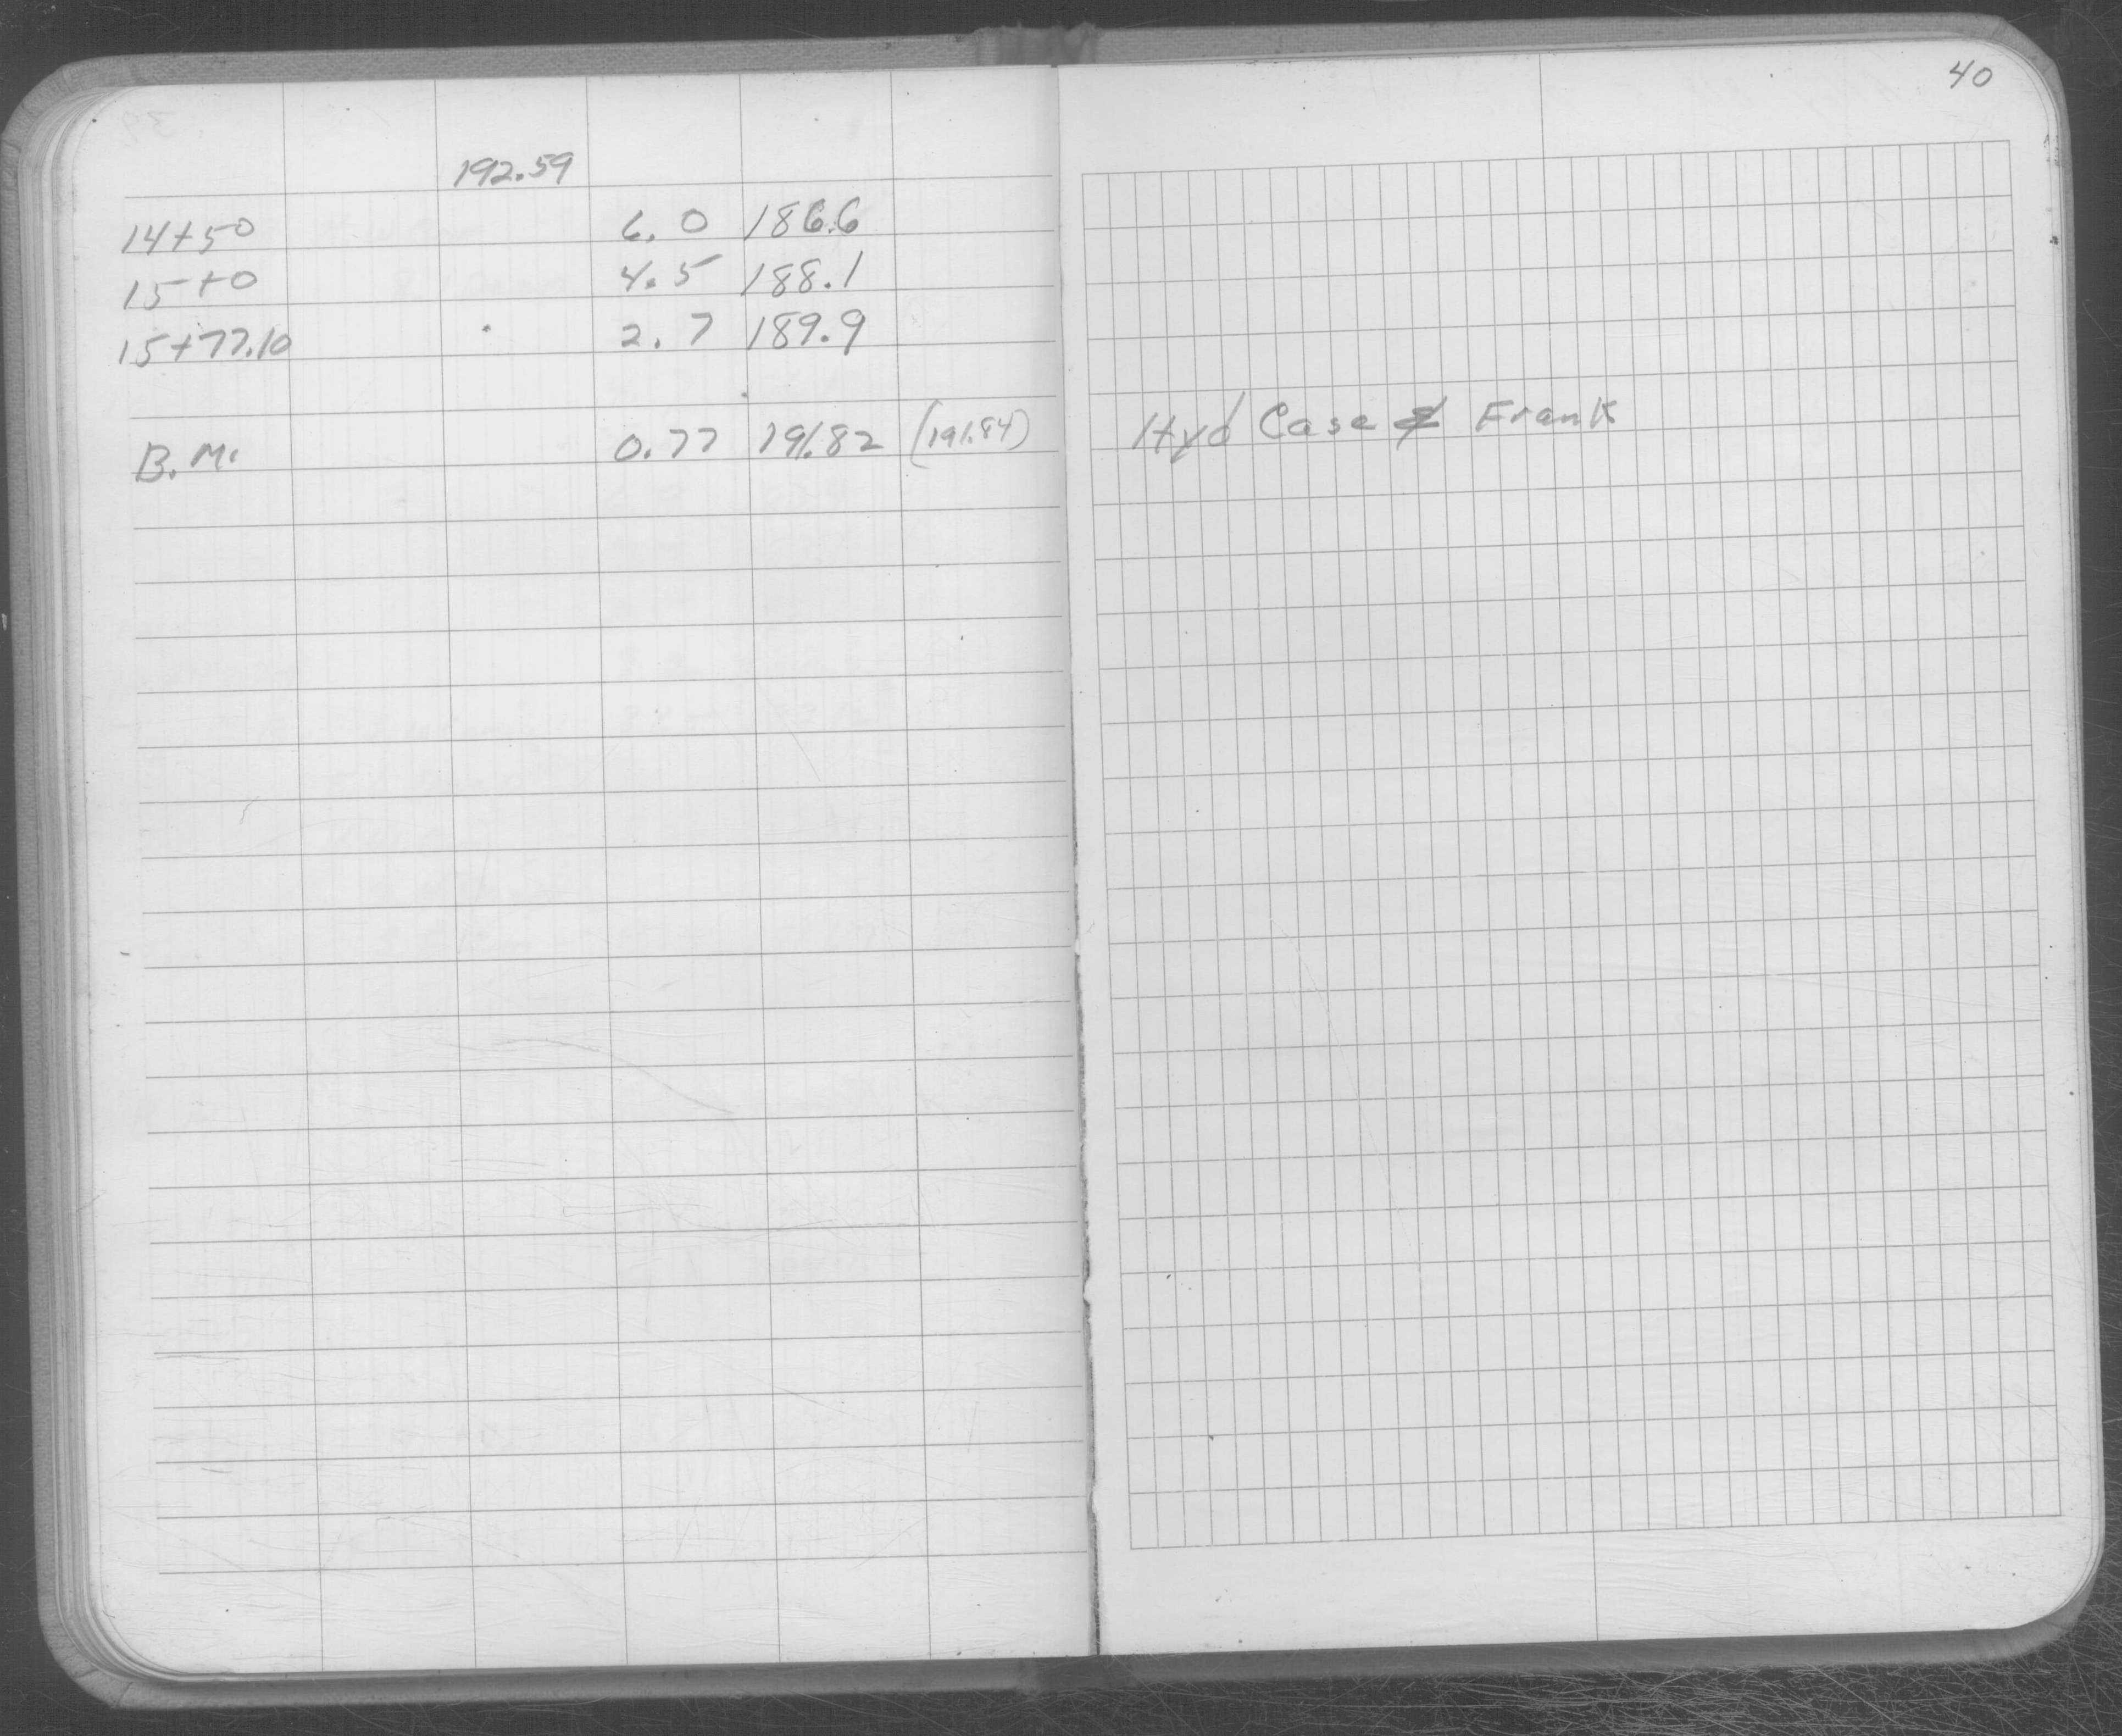 40
192.59
14+50 6.0 186.6
15+0 4.5 188.1
15+77.10 2.7 189.9
B.M. 0.77 191.82 (191.84) Hyd Case & Frank